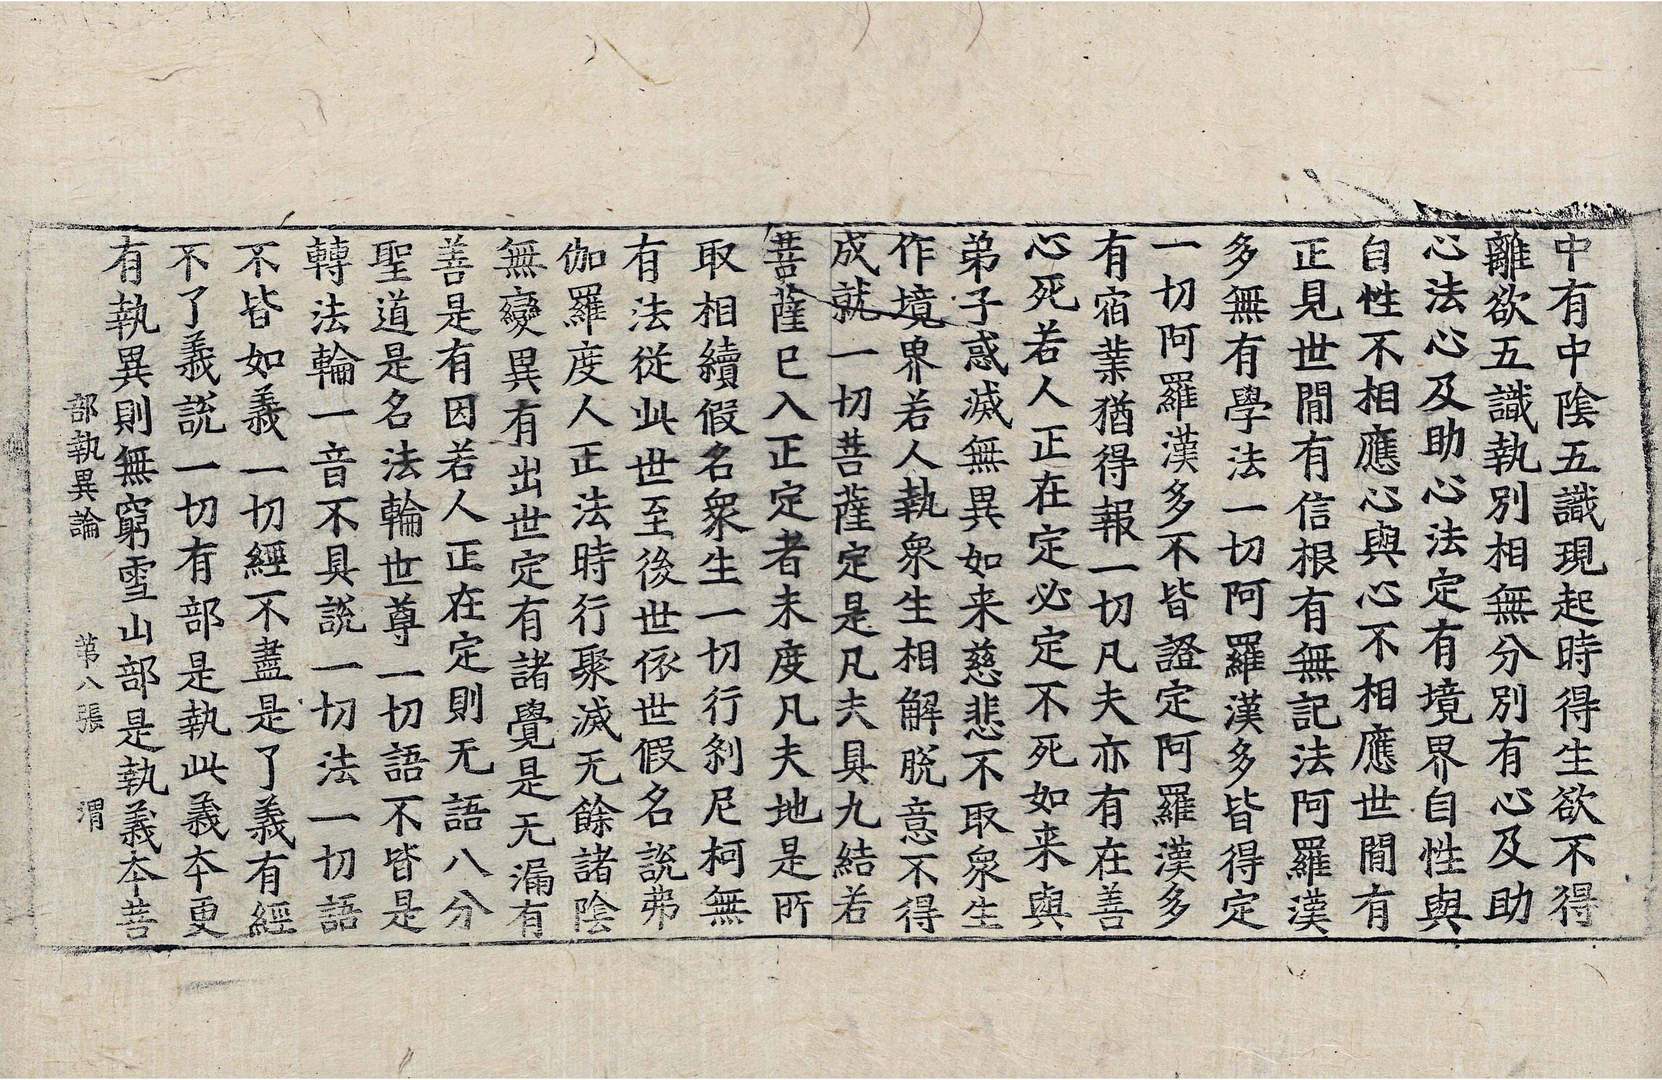 中有中陰五識現起時得生欲不得
離欲五識執別相無分別有心及助
心法心及助心法定有境界自性與
自性不相應心與心不相應世間有
正見世間有信根有無記法阿羅漢
多無有學法一切阿羅漢多皆得定
一切阿羅漢多不皆證定阿羅漢多
有宿業猶得報一切凡夫亦有在善
心死若人正在定必定不死如来與
弟子惑滅無異如来慈悲不取衆生
作境界若人執衆生相解脱意不得
成就一切菩薩定是凡夫具九結若
菩薩已入正定者未度凡夫地是所
取相續假名衆生一切行刹尼柯無
有法從此世至後世依世假名說弗
伽羅度人正法時行聚滅无餘諸陰
無變異有出世定有諸覺是无漏有
善是有因若人正在定則无語八分
聖道是名法輪世尊一切語不皆是
轉法輪一音不具說一切法一切語
不皆如義一切經不盡是了義有經
不了義說一切有部是執此義本更
有執異則無窮雪山部是執義本菩
部執異論 第八張 渭